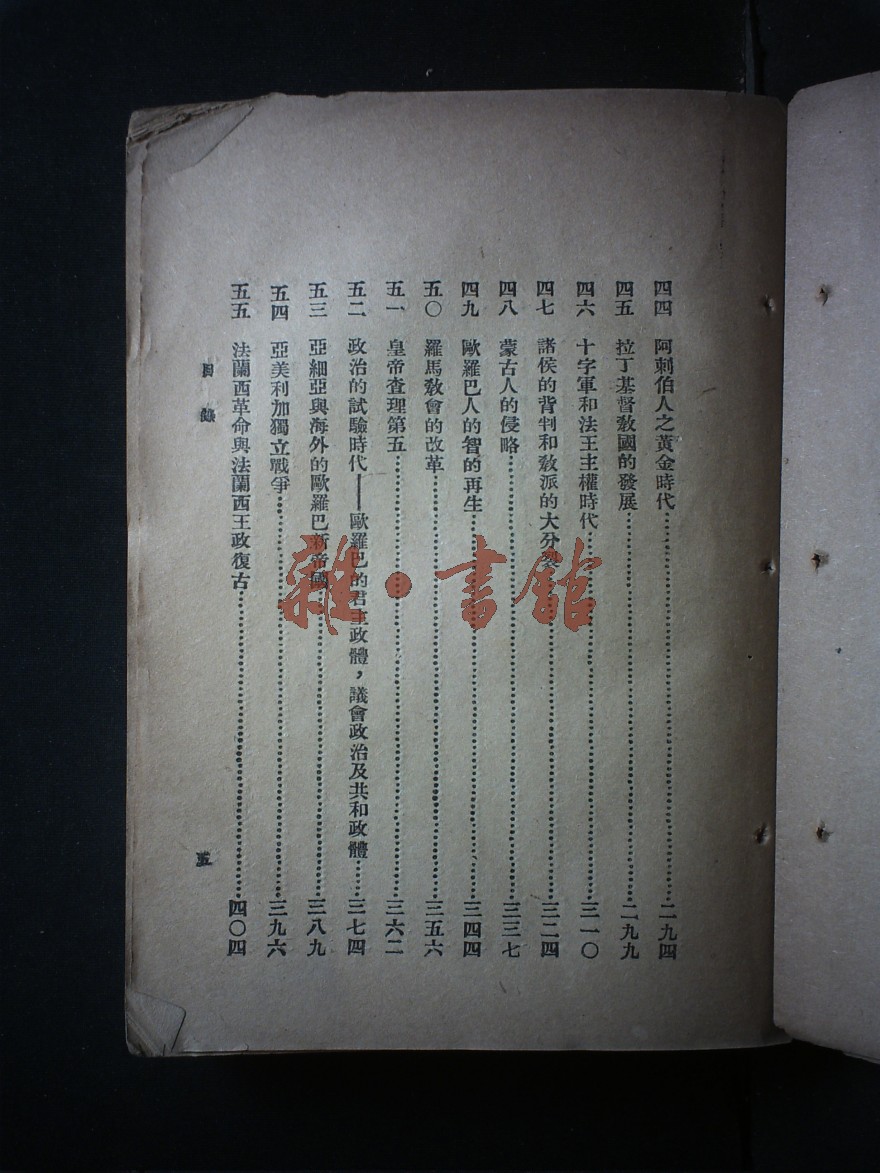 四四 阿剌伯人之黃金時代……二九四
四五 拉丁基督敎國的發展……二九九
四六 十字軍和法王主權時代……三一〇
四七 諸侯的背判和敎派的大分裂……三二四
四八 蒙古人的侵略……三三七
四九 歐羅巴人的智的再生……三四四
五〇 羅馬敎會的改革……三五六
五一 皇帝査理第五……三六二
五二 政治的試驗時代——歐羅巴的君主政體，議會政治及共和政體……三七四
五三 亞細亞與海外的歐羅巴新帝國……三八九
五四 亞美利加獨立戰爭……三九六
五五 法蘭西革命與法蘭西王政復古……四〇四
目錄
五
雜·書館